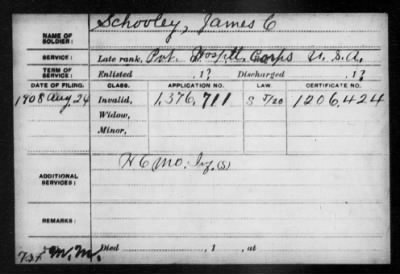 Schooley, James C
NAME OF SOLDIER:
SERVICE: Late rank, Pvt. Hospitl Corps U.S.A.
TERM OF SERVICE: Enlisted , 1? Discharged , 1?
DATE OF FILING. CLASS. APPLICATION NO. LAW. CERTIFICATE NO.
1908 Aug. 24 Invalid, 1,376,711 1206,424
Widow,
Minor,
ADDITIONAL SERVICES: H C
REMARKS:
M.M. Died , 1 , at